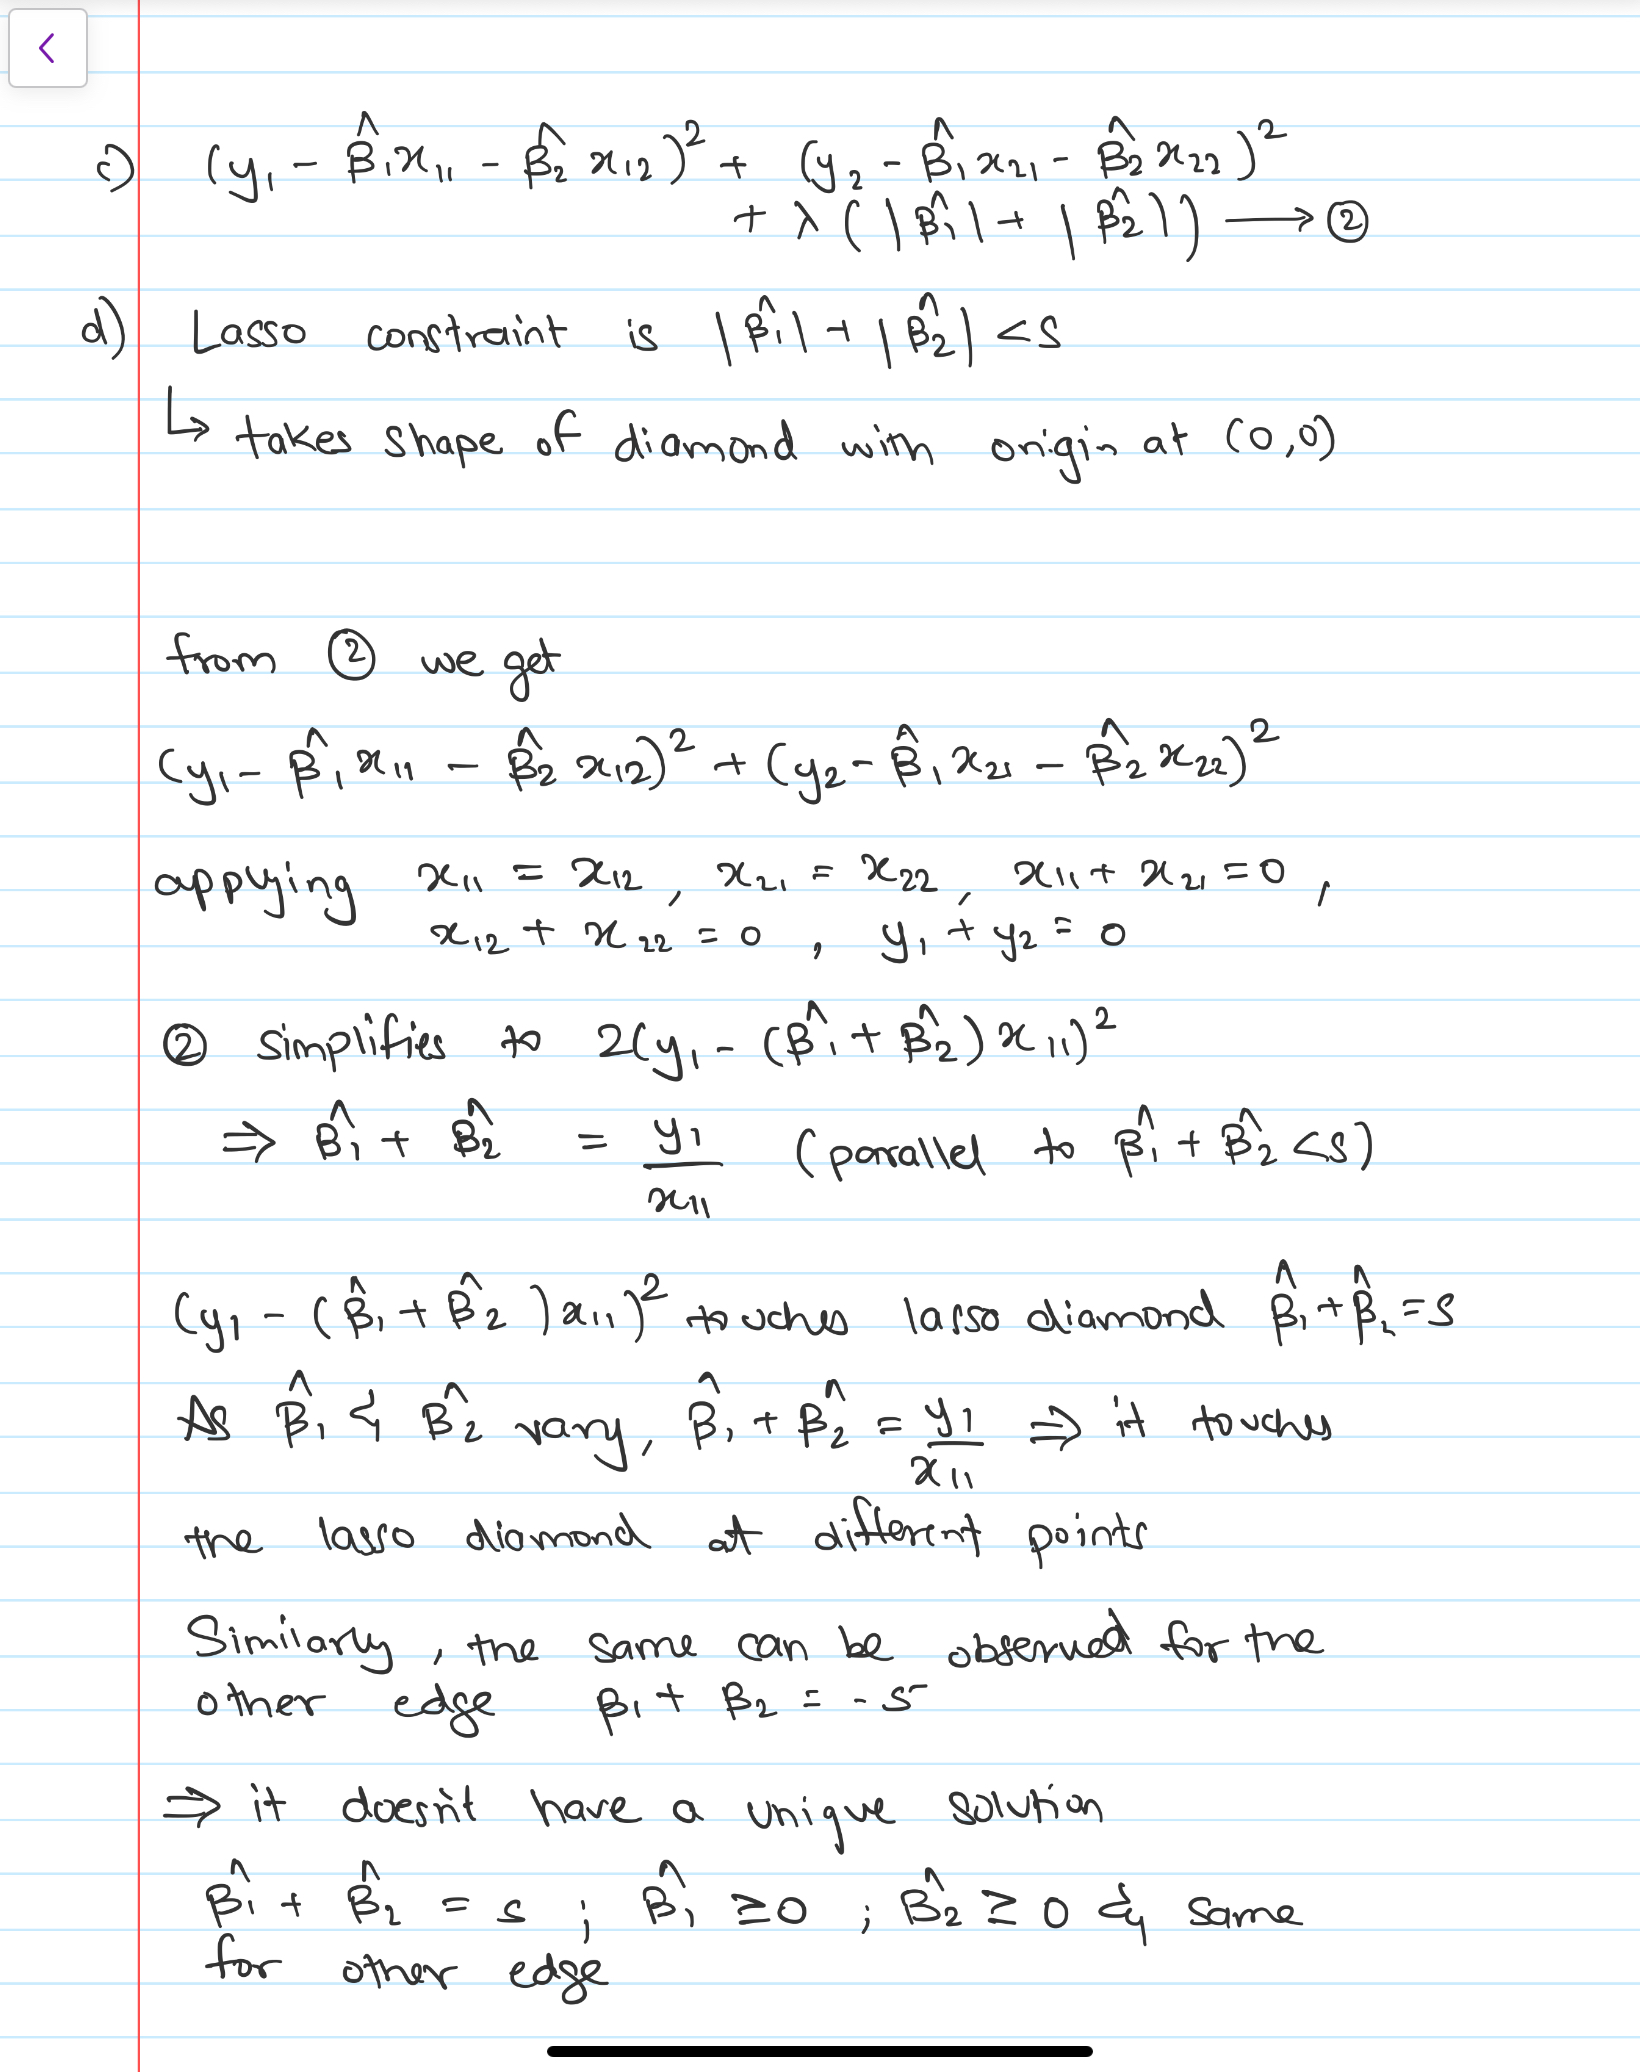 c) (y₁ - β̂₁x₁₁ - β̂₂ x₁₂)² + (y₂ - β̂₁x₂₁ - β̂₂x₂₂)²
+ λ(|β̂₁| + |β̂₂|) ⟶ ②
d) Lasso constraint is |β̂₁| + |β̂₂| < s
↳ takes shape of diamond with origin at (0,0)
from ② we get
(y₁ - β̂₁x₁₁ - β̂₂ x₁₂)² + (y₂ - β̂₁x₂₁ - β̂₂x₂₂)²
appyjing x₁₁ = x₁₂, x₂₁ = x₂₂, x₁₁ + x₂₁ = 0,
x₁₂ + x₂₂ = 0, y₁ + y₂ = 0
② simplifies to 2(y₁ - (β̂₁ + β̂₂)x₁₁)²
⇒ β̂₁ + β̂₂ = y₁/x₁₁ (parallel to β̂₁ + β̂₂ < s)
(y₁ - (β̂₁ + β̂₂)x₁₁)² touches lasso diamond β̂₁ + β̂₂ = s
As β̂₁ & β̂₂ vary, β̂₁ + β̂₂ = y₁/x₁₁ ⇒ it touches
the lasso diamond at different points
Similarly, the same can be observed for the
other edge β₁ + β₂ = -s
⇒ it doesn't have a unique solution
β̂₁ + β̂₂ = s ; β̂₁ ≥ 0 ; β̂₂ ≥ 0 & same
for other edge